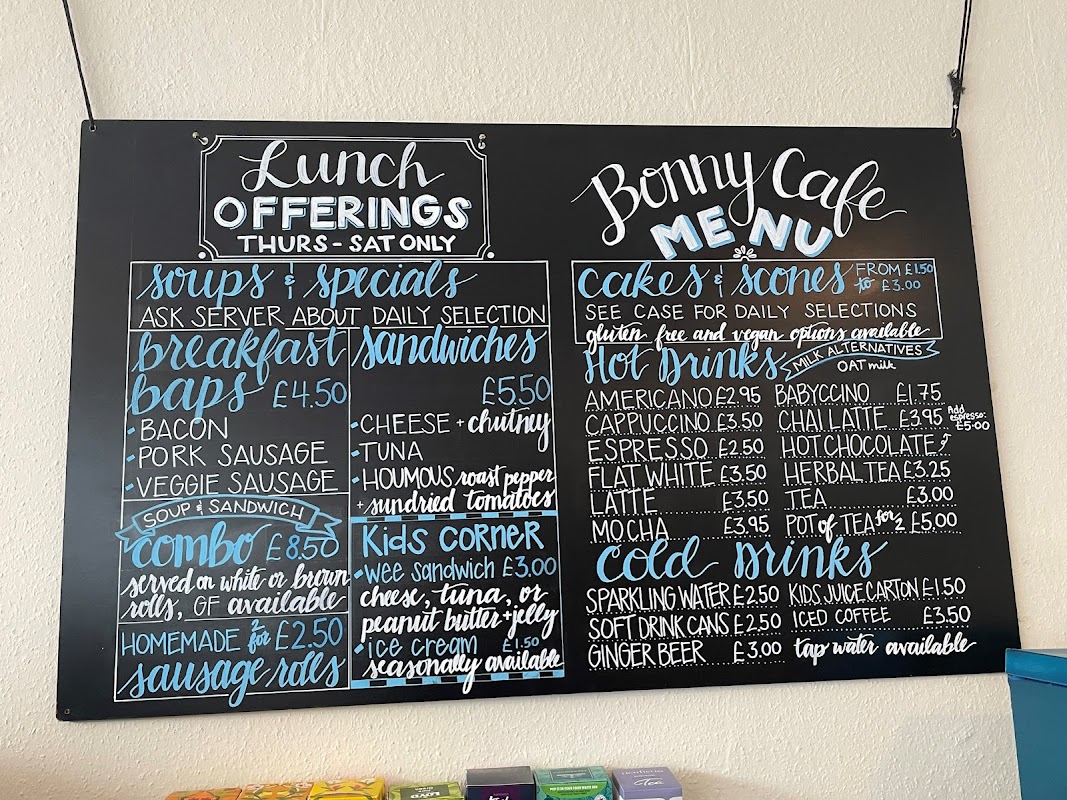 Lunch
OFFERINGS
THURS - SAT ONLY
soups & specials
ASK SERVER ABOUT DAILY SELECTION
breakfast
baps £4.50
BACON
PORK SAUSAGE
VEGGIE SAUSAGE
SOUP & SANDWICH
combo £8.50
served on white or brown
rolls, GF available
HOMEMADE 2 for £2.50
sausage rolls
sandwiches
£5.50
CHEESE + chutney
TUNA
HOUMOUS roast pepper
+ sundried tomatoes
KIDS CORNER
wee sandwich £3.00
cheese, tuna, or
peanut butter + jelly
ice cream £1.50
seasonally available
Bonny Cafe
MENU
cakes & scones FROM £1.50
to £3.00
SEE CASE FOR DAILY SELECTIONS
gluten free and vegan options available
Hot Drinks
MILK ALTERNATIVES
OAT milk
AMERICANO £2.95
CAPPUCCINO £3.50
ESPRESSO £2.50
FLAT WHITE £3.50
LATTE £3.50
MOCHA £3.95
BABYCCINO £1.75
CHAI LATTE £3.95 Add
espresso:
£5.00
HOT CHOCOLATE
HERBAL TEA £3.25
TEA £3.00
POT of TEA for 2 £5.00
Cold Drinks
SPARKLING WATER £2.50
SOFT DRINK CANS £2.50
GINGER BEER £3.00
KIDS JUICE CARTON £1.50
ICED COFFEE £3.50
tap water available
Tea